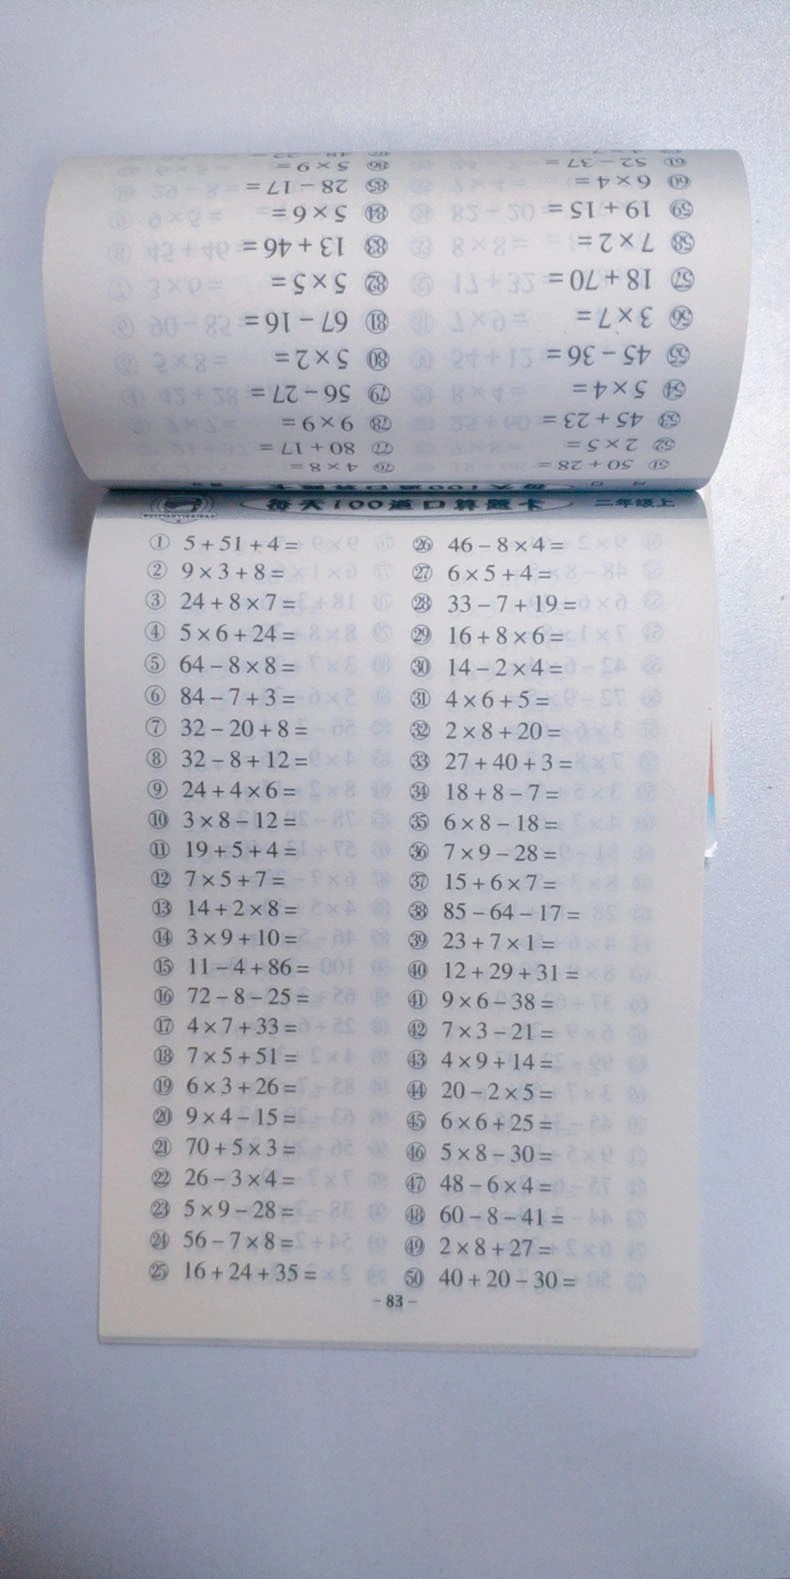 61 52－37＝
86 5×9＝
60 6×4＝
85 28－17＝
59 19＋15＝
84 5×6＝
58 7×2＝
83 13＋46＝
57 18＋70＝
82 5×5＝
56 3×7＝
81 67－16＝
55 45－36＝
80 5×2＝
54 5×4＝
79 56－27＝
53 45＋23＝
78 9×9＝
52 2×5＝
77 80＋17＝
51 50＋28＝
76 4×8＝
每天100道口算题卡 二年级上
① 5＋51＋4＝
② 9×3＋8＝
③ 24＋8×7＝
④ 5×6＋24＝
⑤ 64－8×8＝
⑥ 84－7＋3＝
⑦ 32－20＋8＝
⑧ 32－8＋12＝
⑨ 24＋4×6＝
⑩ 3×8－12＝
⑪ 19＋5＋4＝
⑫ 7×5＋7＝
⑬ 14＋2×8＝
⑭ 3×9＋10＝
⑮ 11－4＋86＝
⑯ 72－8－25＝
⑰ 4×7＋33＝
⑱ 7×5＋51＝
⑲ 6×3＋26＝
⑳ 9×4－15＝
㉑ 70＋5×3＝
㉒ 26－3×4＝
㉓ 5×9－28＝
㉔ 56－7×8＝
㉕ 16＋24＋35＝
㉖ 46－8×4＝
㉗ 6×5＋4＝
㉘ 33－7＋19＝
㉙ 16＋8×6＝
㉚ 14－2×4＝
㉛ 4×6＋5＝
㉜ 2×8＋20＝
㉝ 27＋40＋3＝
㉞ 18＋8－7＝
㉟ 6×8－18＝
㊱ 7×9－28＝
㊲ 15＋6×7＝
㊳ 85－64－17＝
㊴ 23＋7×1＝
㊵ 12＋29＋31＝
㊶ 9×6－38＝
㊷ 7×3－21＝
㊸ 4×9＋14＝
㊹ 20－2×5＝
㊺ 6×6＋25＝
㊻ 5×8－30＝
㊼ 48－6×4＝
㊽ 60－8－41＝
㊾ 2×8＋27＝
㊿ 40＋20－30＝
－83－